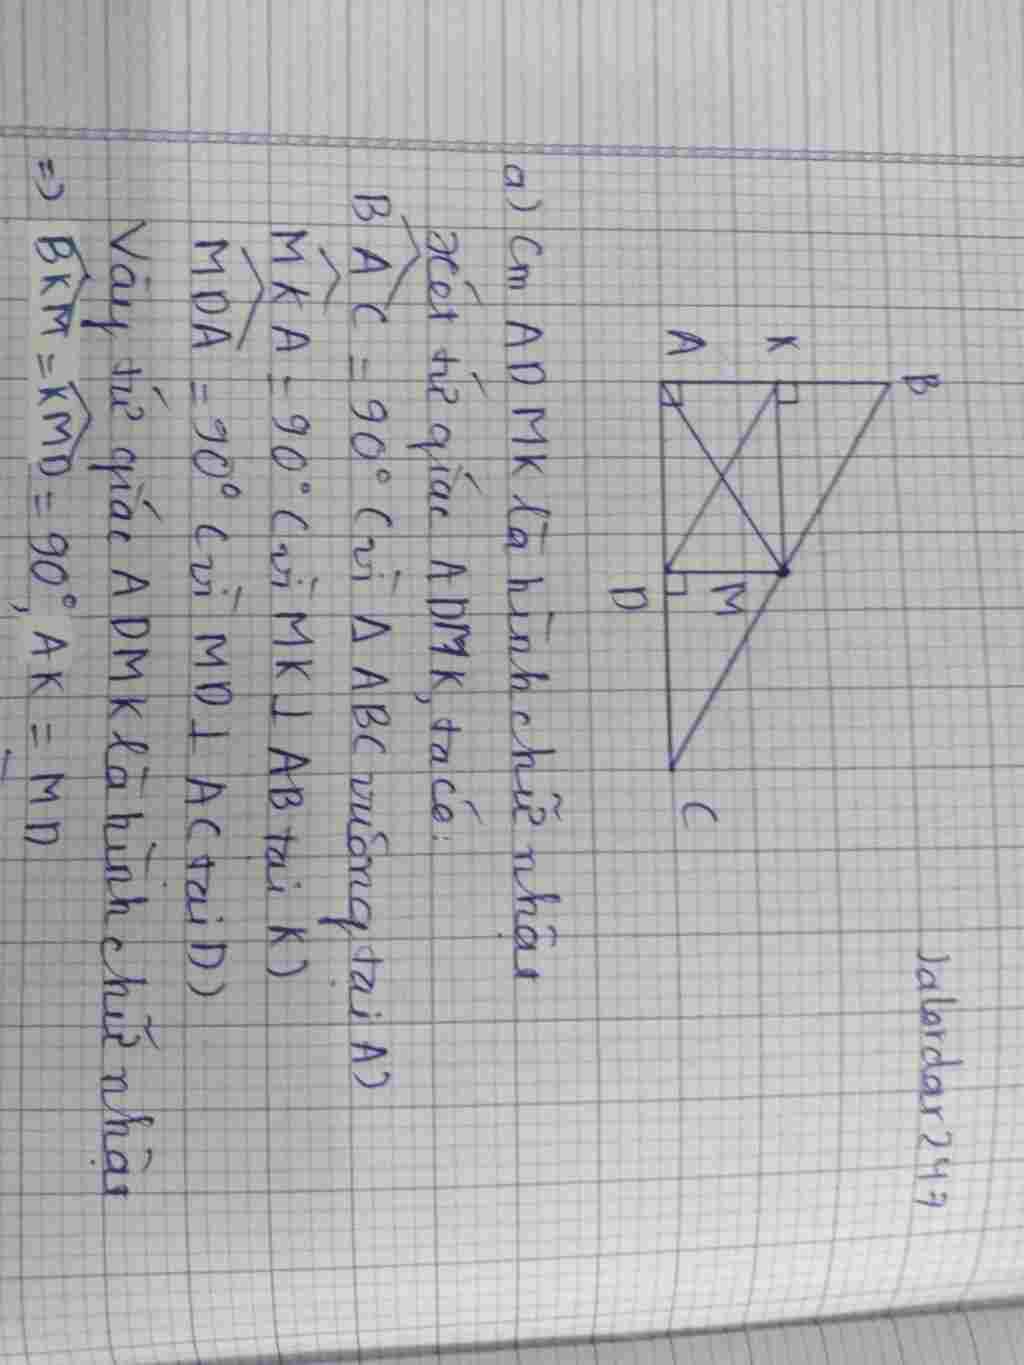 Jalordar24:7
B
K
A
M
D
C
a) Cm ADMK là hình chữ nhật
Xét tứ giác ADMK, ta có:
BAC = 90° (vì Δ ABC vuông tại A)
MKA = 90° (vì MK⊥ AB tại K)
MDA = 90° (vì MD⊥ AC tại D)
Vậy tứ giác ADMK là hình chữ nhật
=> BKM = KMD = 90°, AK = MD